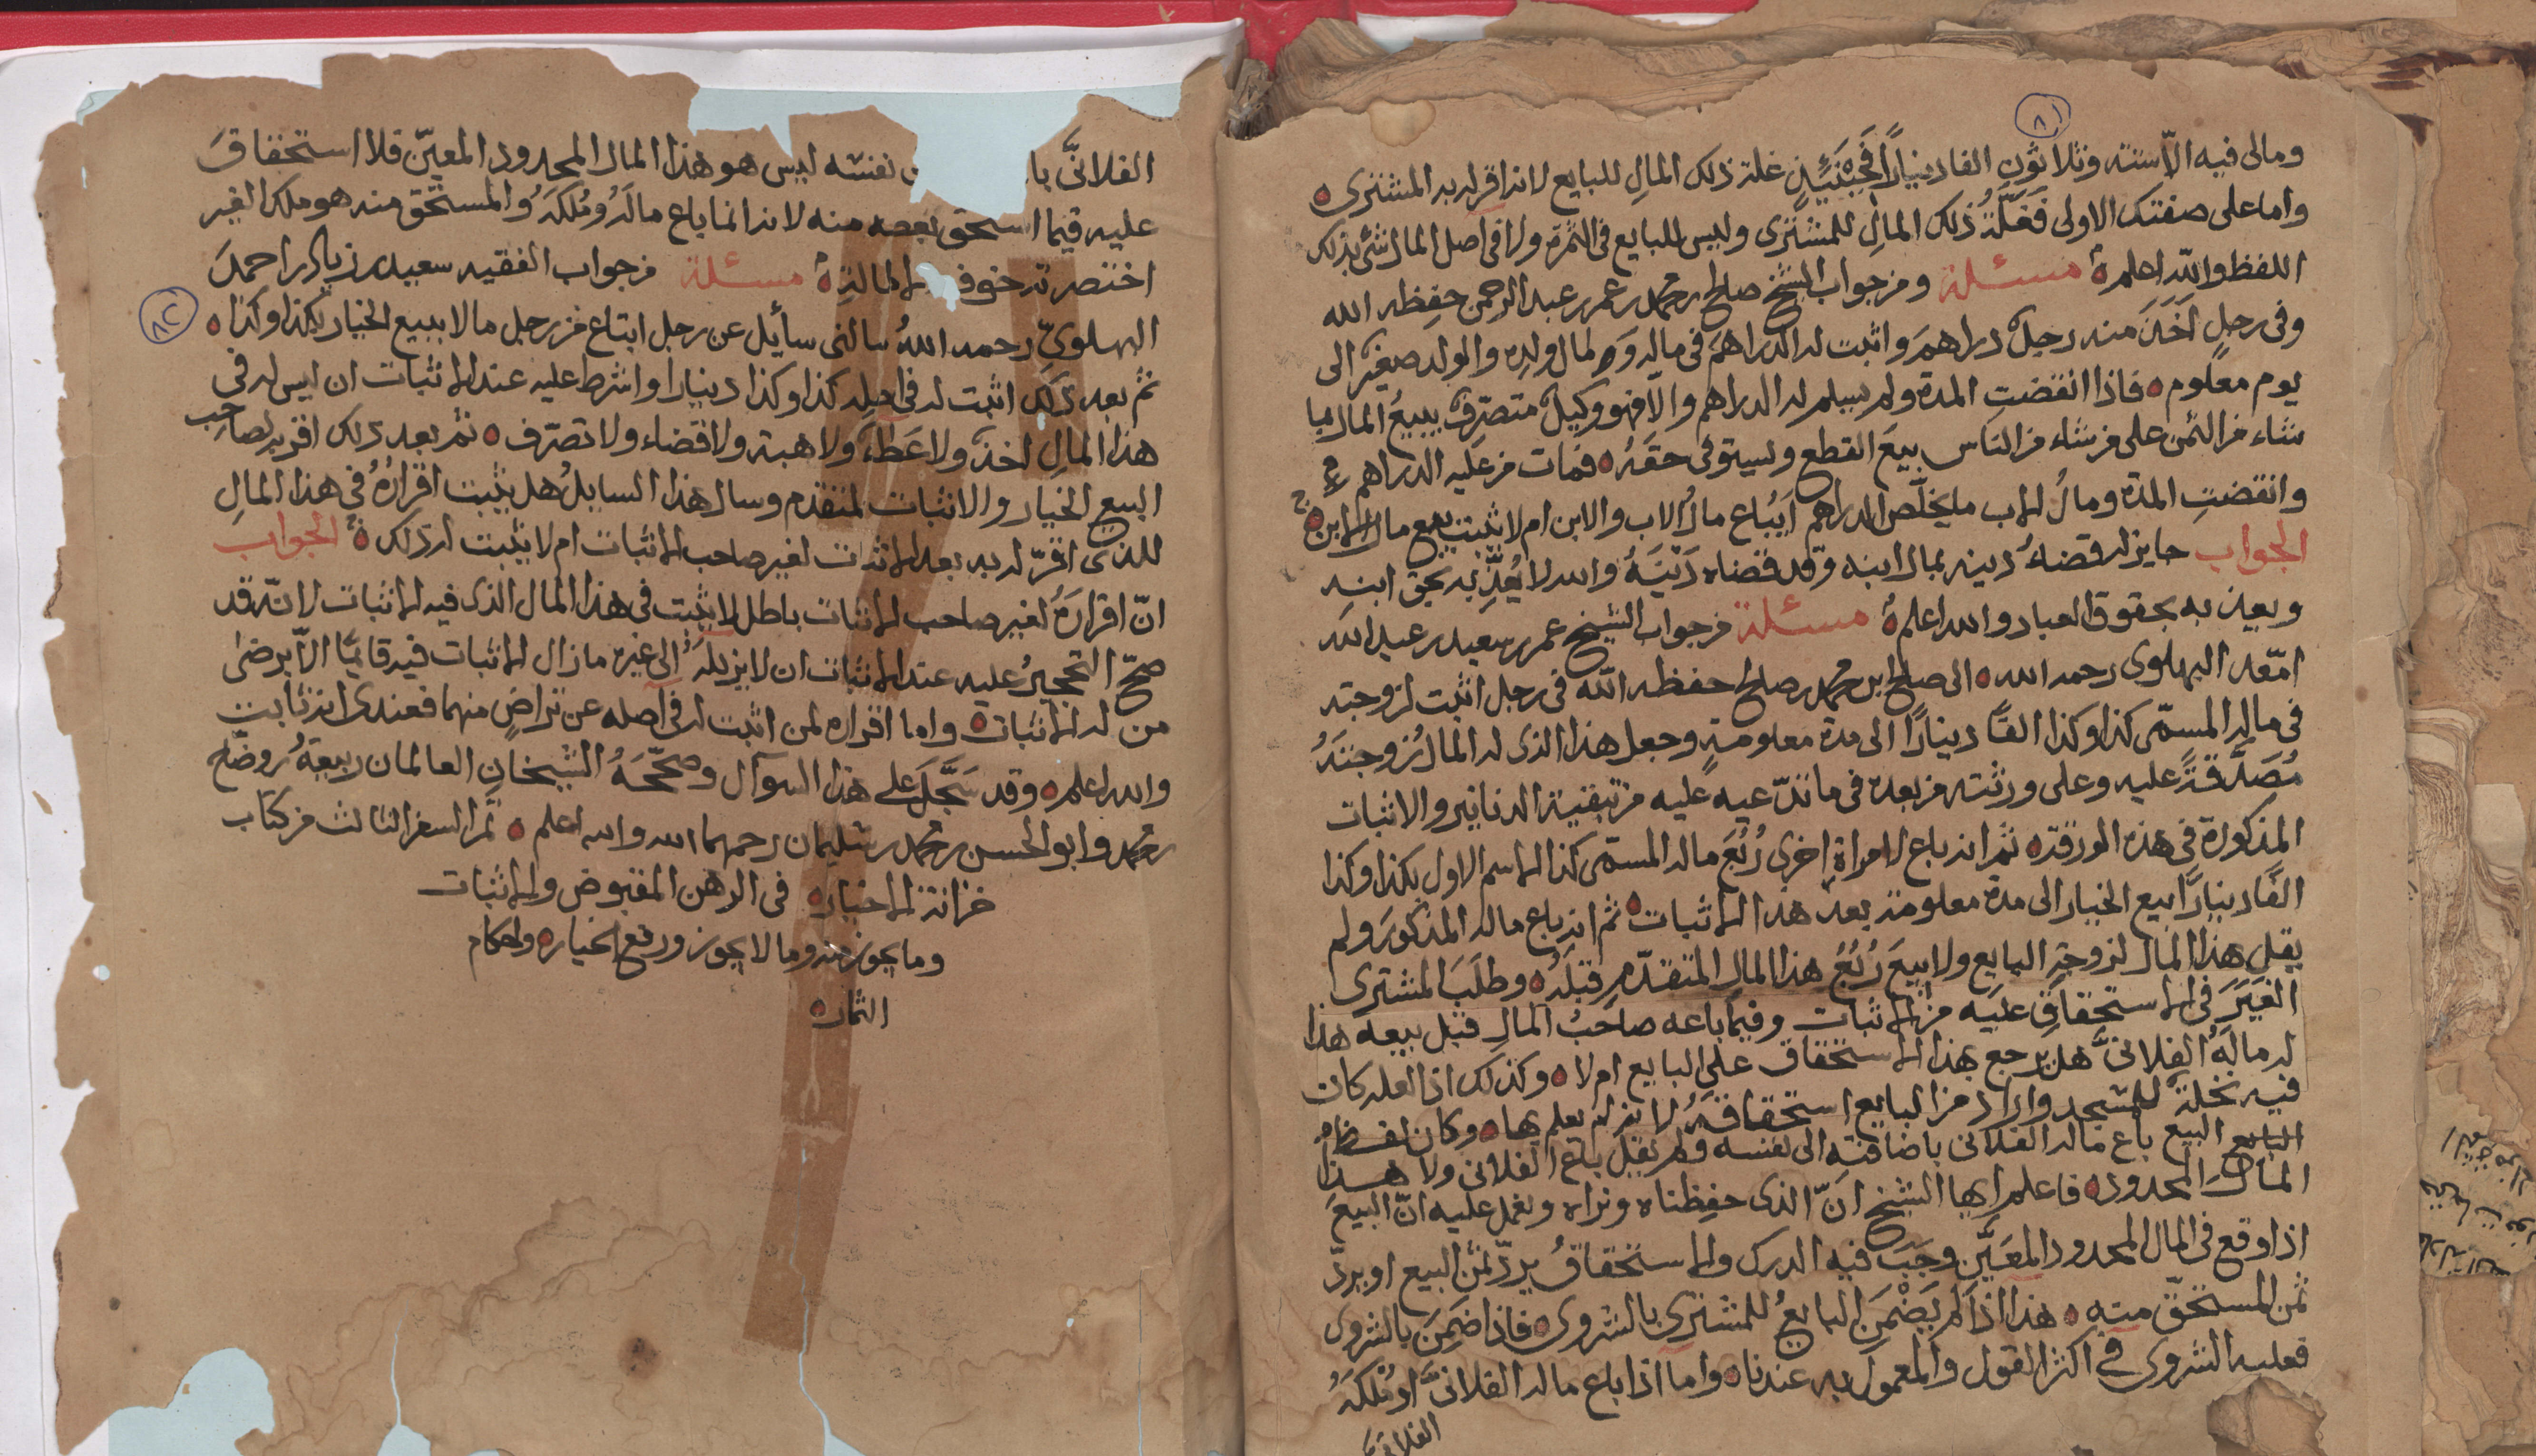 ٨١
ومالى فيه الّا ستة وثلاثون الفا دينارًا فحينئذٍ غلة ذلك المالِ للبايع لانه اقر له به المشترى ه
واما على صفتك الاولى فَغَلَّةُ ذلك المالِ للمشترى وليس للبايع فى الثمرة ولا فى اصل المال شئ بذلك
اللفظ والله اعلم ه مسئلة ومن جواب الشيخ صالح بن محمد بن عمر بن عبد الرحمن حفظه الله
وفى رجلٍ اَخَذَ منه رجلٌ دراهمَ واثبت له الدراهمَ فى ماله وم لمال ولده والولد صغير الى
يوم معلوم ه فاذا انقضتِ المدة ولم يسلم له الدراهم والّا فهو وكيلٌ متصرّفٌ يبيعُ المال بما
شاء من الثمن على من شاء من الناس بيعَ القطع ويستوفى حقَهُ ه فمات من عليه الدراهم
وانقضتِ المدة ومالُ الاب ما يخلّص الدراهم اَيُباع مالُ الاب والابن ام لا يثبت بيع مال الابن ه
الجواب جايز له قضاءُ دينه بمال ابنه وقد قضاه دَيْنَهُ والله لا يُعَذِّبه بحق ابنه
ويعذبه بحقوق العباد والله اعلم ه مسئلة من جواب الشيخ عمر بن سعيد بن عبد الله
امّعد البهلوى رحمه الله ه الى صالح ابن محمد بن صالح حفظه الله فى رجل اثبت لزوجته
فى ماله المسمّى كذا وكذا الفًا دينارًا الى مدة معلومةٍ وجعل هذا الذى له المال زوجتَهُ
مُصَدَّقةً عليه وعلى ورثته من بعده فى ما تدّعيه عليه من تبقية الدنانير والاثبات
المذكورة فى هذه الورقة ه ثم انه باع لامراة اخرى رُبُعَ ماله المسمّى كذا الاسم الاول بكذا وكذا
الفًا دينارًا بيع الخيار الى مدة معلومة بعد هذا الاثبات ه ثم انه باع ماله المذكورَ ولم
يقل هذا المال لزوجة البايع ولا بيعَ رُبُعُ هذا المال المتقدّم قبلَهُ ه وطلَبَ المشترى
الغِيَرَ فى الاستحقاقِ عليه من الاثبات وفيما باعه صاحبُ المالِ قبل بيعه هذا
له مالَهُ الفلانىَّ هل يرجع بهذا الاستحقاق على البايع ام لا ه وكذلك اذا لعله كان
فيه نخلة للمسجد واراد من البايع استحقاقَهُ لانه لم يعلم بها ه وكان لفظ
البايع البيع باع ماله الفلانى باضافته الى نفسه ولم يقل باع الفلانى ولا هذا
المالَ المحدود ه فاعلم ايها الشيخ انّ الذى حفظناه ونراه ونعمل عليه انّ البيعَ
اذا وقع فى المال المحدود المعيَّنِ وجَبَ فيه الدرك والاستحقاقُ يردّ ثمن البيع او يردّ
ثمن المستحقّ منه ه هذا اذا لم يَضْمَنِ البايعُ للمشترى بالشروى ه فاذا ضمِنَ بالشروى
فعليه الشروى فى اكثر القول والمعمول به عندنا ه واما اذا باع ماله الفلانىَّ او مُلْكَهُ
الفلانىَّ
الفلانىَّ با نفسه ليس هو هذا المال المحدود المعيّن فلا استحقاقَ
عليه فيما استحق بعضه منه لانه انما باع مالَهُ ومُلكَهُ والمستحَق منه هو ملك الغير
اختصرته خوف الاطالة ه مسئلة من جواب الفقيه سعيد بن زياد بن احمدَ
٨٢
البهلوىّ رحمه اللهُ سالنى سائل عن رجل ابتاع من رجل مالا ببيع الخيار بكذا وكذا ه
ثم بعد ذلك اثبت له فى اصله كذا وكذا دينارا واشرط عليه عند الاثبات ان ليس له فى
هذا المالِ اخذٌ ولا عَطاءٌ ولا هبة ولا قضاء ولا تصرّف ه ثم بعد ذلك اقر به لصاحب
البيع الخيار والاثبات المتقدم وسال هذا السايلُ هل يثبت اقرارُهُ فى هذا المالِ
للذى اقرّ له به بعد الاثبات لغير صاحب الاثبات ام لا يثبت له ذلك ه الجواب
انّ اقرارَهُ لغير صاحب الاثبات باطل لا يثبت فى هذا المال الذى فيه الاثبات لانّه قد
صحّ التحجيرُ عليه عند الاثبات ان لا يزيلَهُ الى غيره ما زال الاثبات فيه قائمًا الّا برضى
من له الاثبات ه واما اقراره لمن اثبت له فى اصله عن تراضٍ منهما فعندى انه ثابت
والله اعلم ه وقد سَجَّلَ على هذا السوآل وصحّحَهُ الشيخان العالمان ربيعةُ بن وضّاح
بن محمد وابو الحسن بن محمد بن سليمان رحمهما الله والله اعلم ه تم السفر الثالث من كتاب
خزانة الاخيار ه فى الرهن المقبوض والاثبات
وما يجوز منه وما لا يجوز وربيع الخيار ه واحكام
الثمار ه